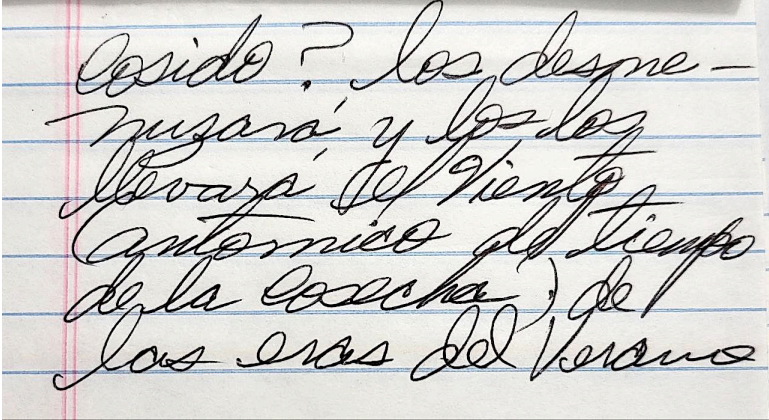 cosido? los desme-
nuzará, y los los
llevará, el Viento
(antomico del tiempo
de la cosecha) de
las eras del Verano